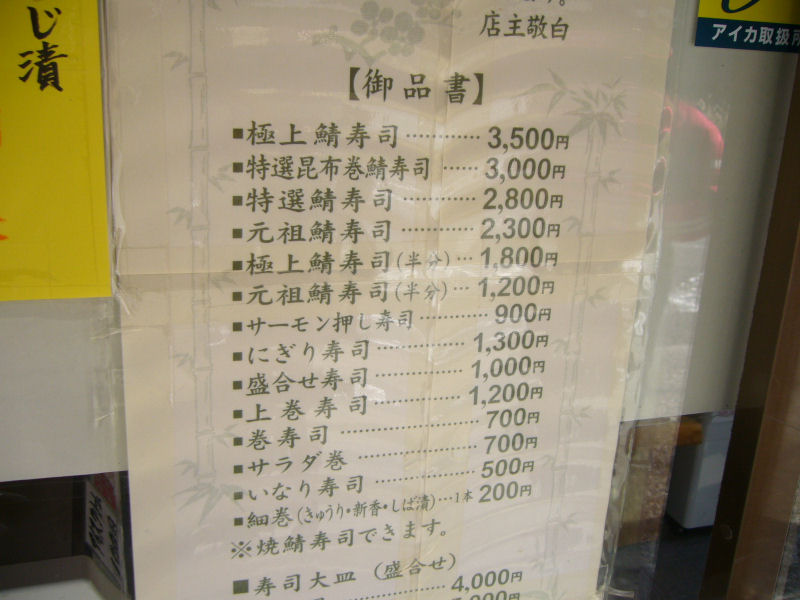 じ漬
アイカ取扱所
店主敬白
【御品書】
■極上鯖寿司…………3,500円
■特選昆布巻鯖寿司……3,000円
■特選鯖寿司…………2,800円
■元祖鯖寿司…………2,300円
■極上鯖寿司(半分)…1,800円
■元祖鯖寿司(半分)…1,200円
■サーモン押し寿司…………900円
■にぎり寿司…………1,300円
■盛合せ寿司…………1,000円
■上巻寿司…………1,200円
■巻寿司…………700円
■サラダ巻…………700円
■いなり寿司…………500円
■細巻(きゅうり・新香・しば漬)…1本 200円
※焼鯖寿司できます。
■寿司大皿(盛合せ)
…………4,000円